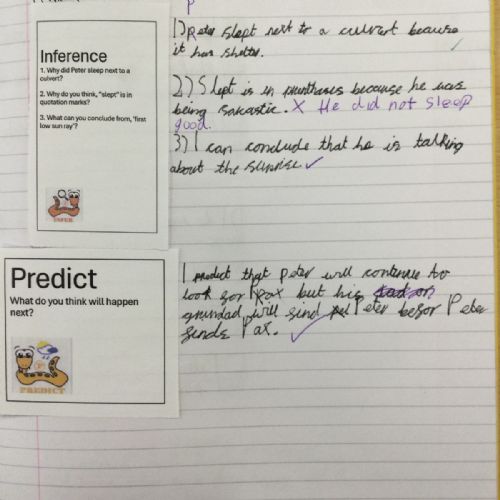 P
Inference
1. Why did Peter sleep next to a
culvert?
2. Why do you think, "slept" is in
quotation marks?
3. What can you conclude from, 'first
low sun ray'?
INFER
1) Peter slept next to a culvert because
it has shelter.
2) Slept is in because he was
being sarcastic. X He did not sleep
good.
3) I can conclude that he is talking
about the sunrise. ✓
Predict
What do you think will happen
next?
PREDICT
I predict that Peter will continue to
look for Pax but his
grandad will find Peter befor Peter
finds Pax. ✓